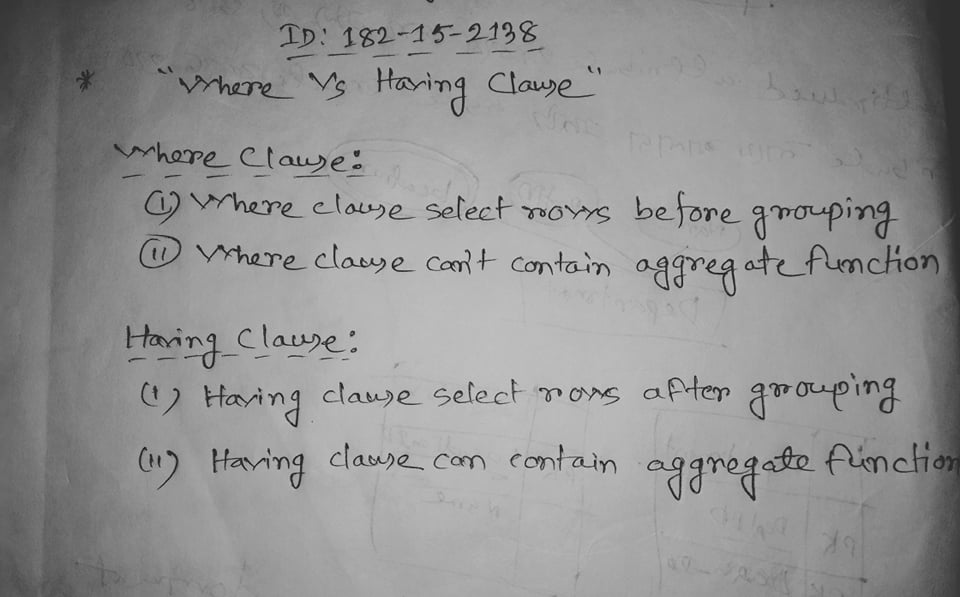 ID: 182-15-2138
* "Where Vs Having Clause"
Where Clause:
(i) Where clause select rows before grouping
(ii) Where clause can't contain aggregate function
Having Clause:
(i) Having clause select rows after grouping
(ii) Having clause can contain aggregate function